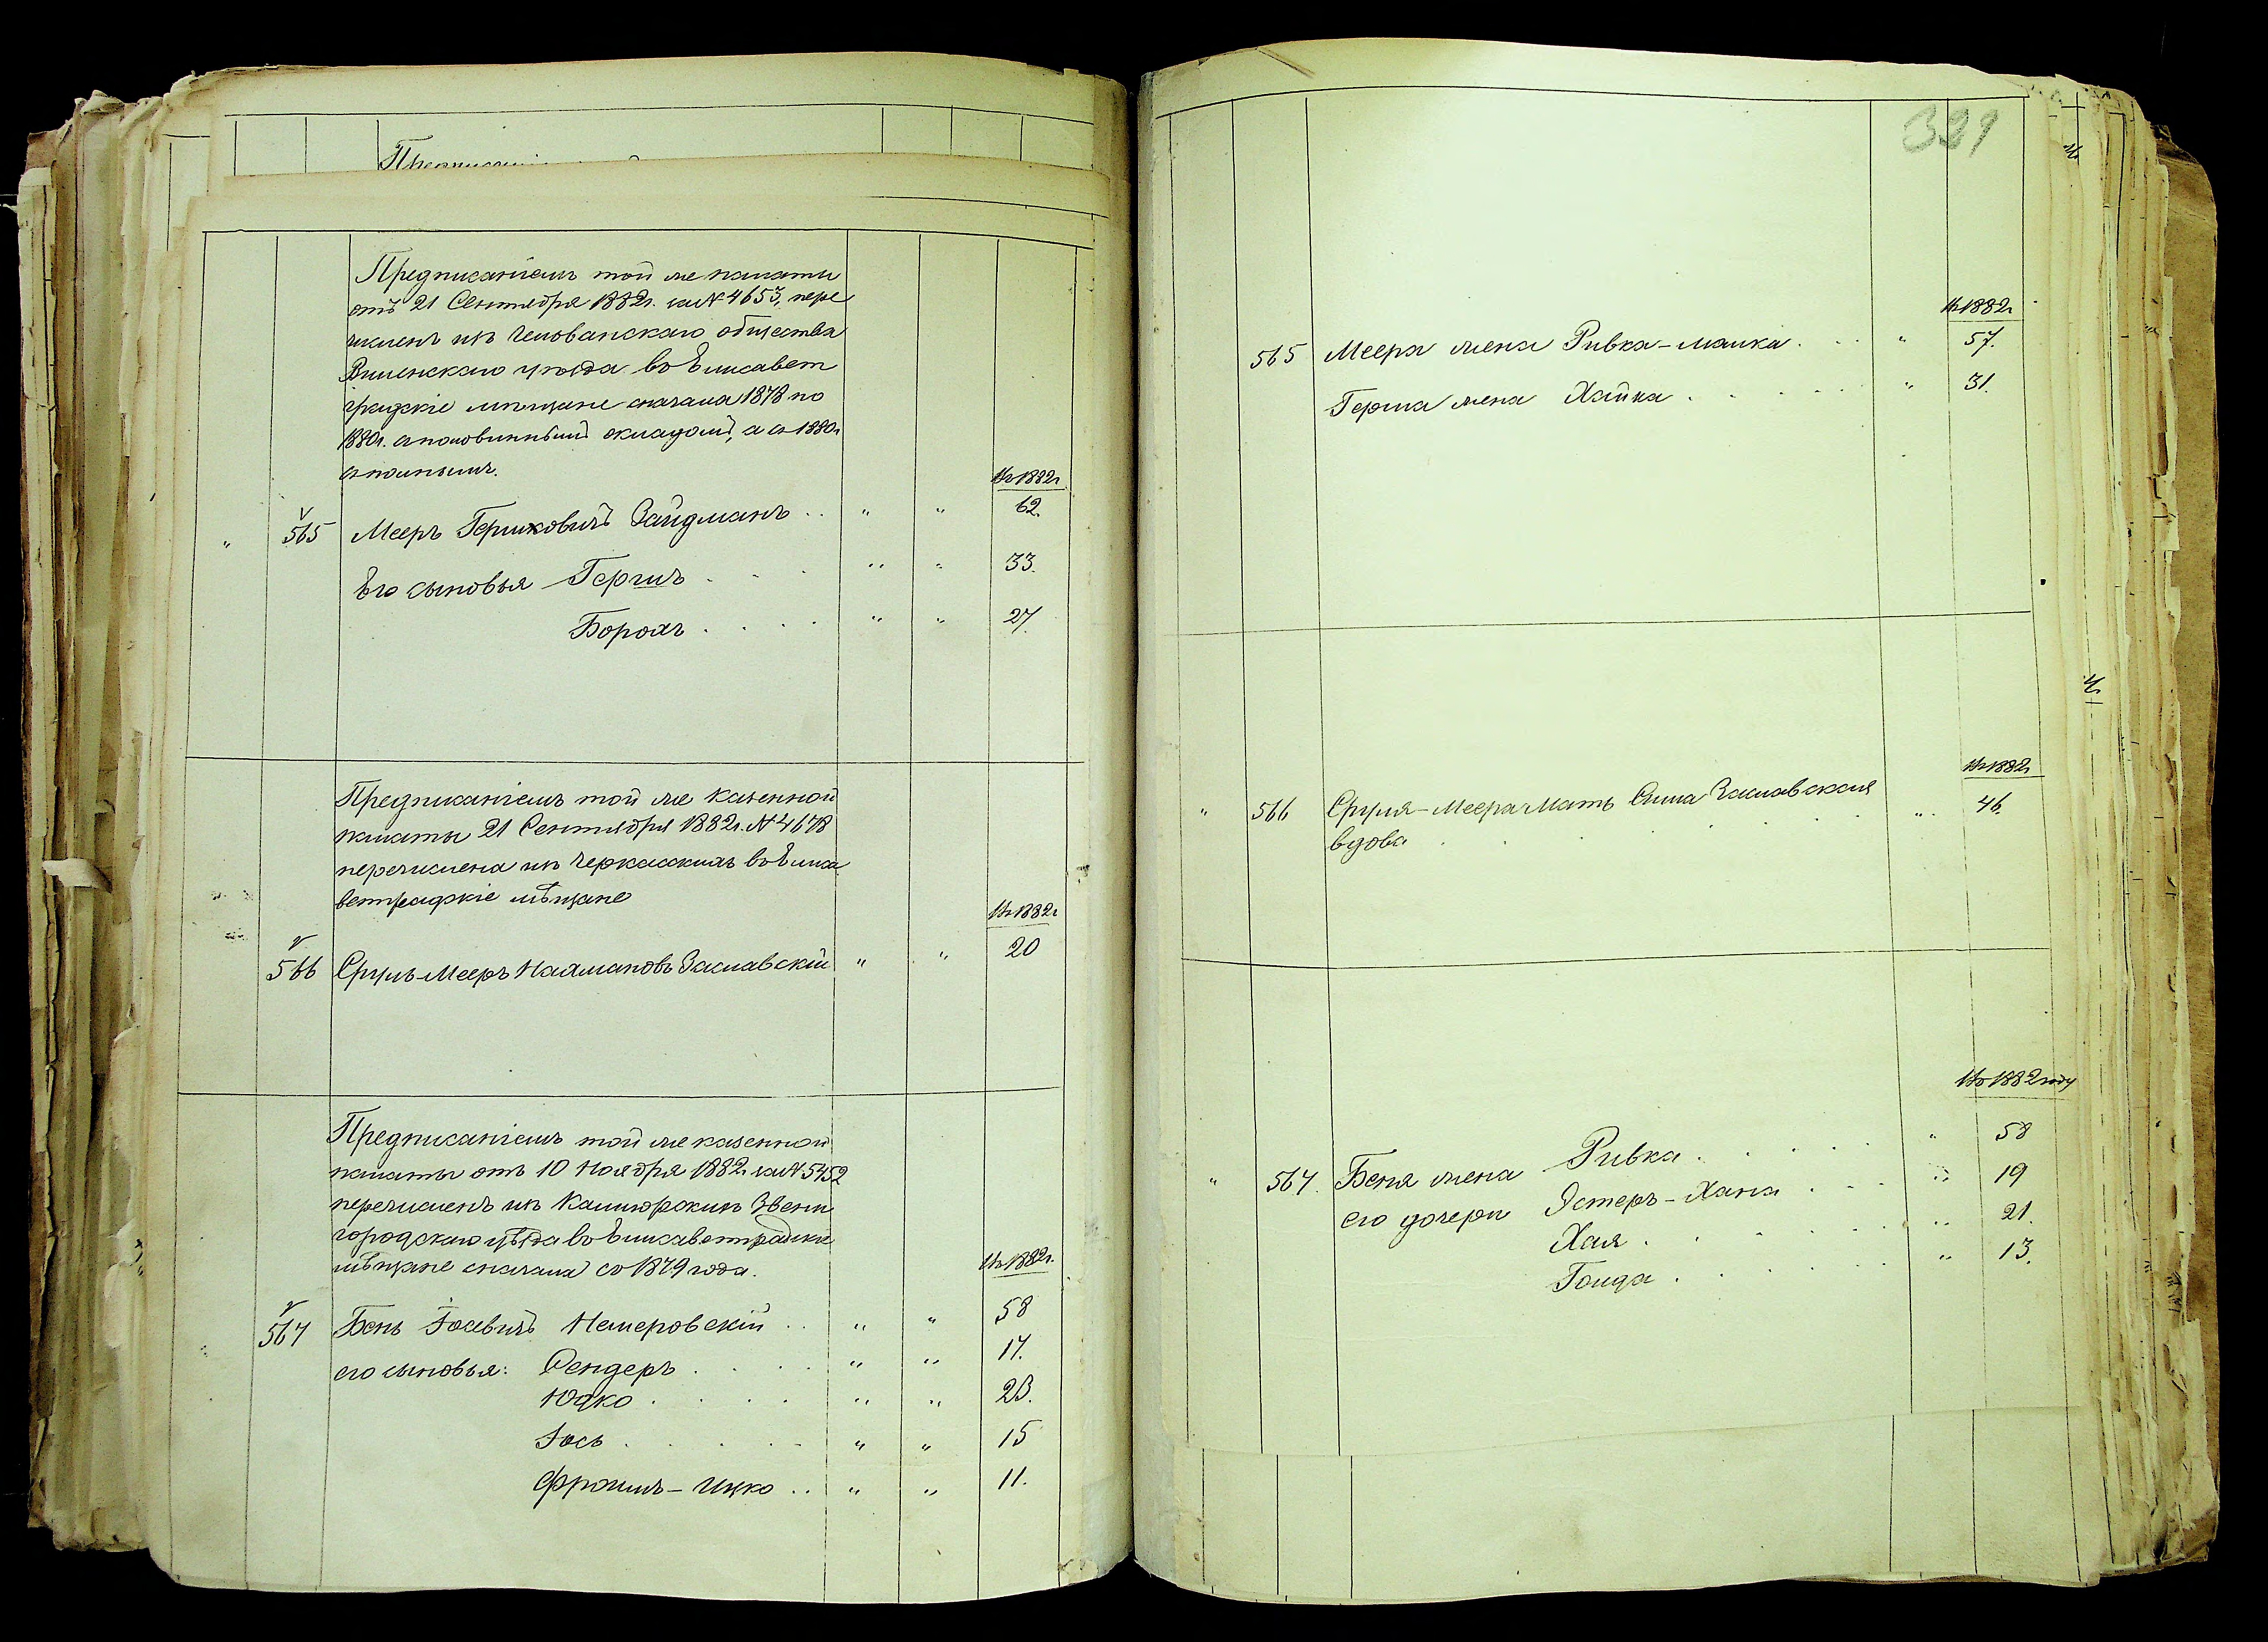 Предписані
Предписаніемъ той же палаты
отъ 21 Сентября 1882г. за № 4653, пере
численъ изъ общества
Виленскаго уѣзда въ Елисавет
градскіе мѣщане сначала 1878 по
1880г. съ половиннымъ окладомъ, а съ 1880г
съ полнымъ.
Въ 1882г
" 565 Мееръ Гершковичъ Зайдманъ . . " " 62.
Его сыновья Гершъ . . . " " 33.
Борохъ . . . . " " 27.
Предписаніемъ той же казенной
палаты 21 Сентября 1882г. № 4678
перечислена изъ Черкасскихъ въ Елиса
ветградскіе мѣщане
Въ 1882г
566 Сруль-Мееръ Нахмановъ Заславскій " " 20
Предписаніемъ той же казенной
палаты отъ 10 Ноября 1882г. за № 5452
перечисленъ изъ Звени
городскаго уѣзда въ Елисаветградскіе
мѣщане сначала съ 1879 года.
Въ 1882г.
567 Бень Іосевичъ Немеровскій . . " " 58
его сыновья: Сендеръ . . . . " " 17.
Юдко . . . . " " 23.
Іось . . . . . " " 15
Фроимъ-Ицко . . " " 11.
321
Въ 1882г
565 Меера жена Ривка-Малка . . . " 57.
Герша жена Хайка . . . . . " 31.
Въ 1882г
" 566 Сруля-Меера Мать Сима Заславская " 46.
вдова . . . . . . .
Въ 1882 году
" 567. Беня жена Ривка . . . . . " 58
его дочери Эстеръ-Хана . . . " 19
Хая . . . . . . " 21.
Голда . . . . . . " 13.